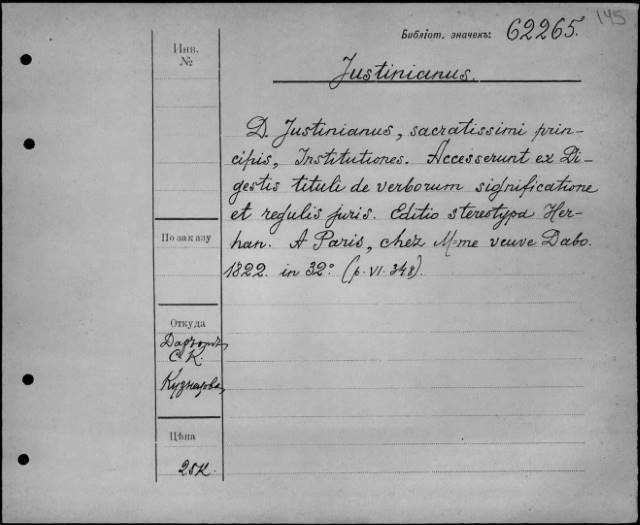 145
Библіот. значекъ: 62265.
Инв.
№
Justinianus.
D. Justinianus, sacratissimi prin-
cipis, Institutiones. Accesserunt ex Di-
gestis tituli de verborum significatione
et regulis juris. Editio stereotypa Her-
han. A Paris, chez M-me veuve Dabo.
1822. in 32° (p. VI. 348).
По заказу
Откуда
С. К.
Цѣна
25к.